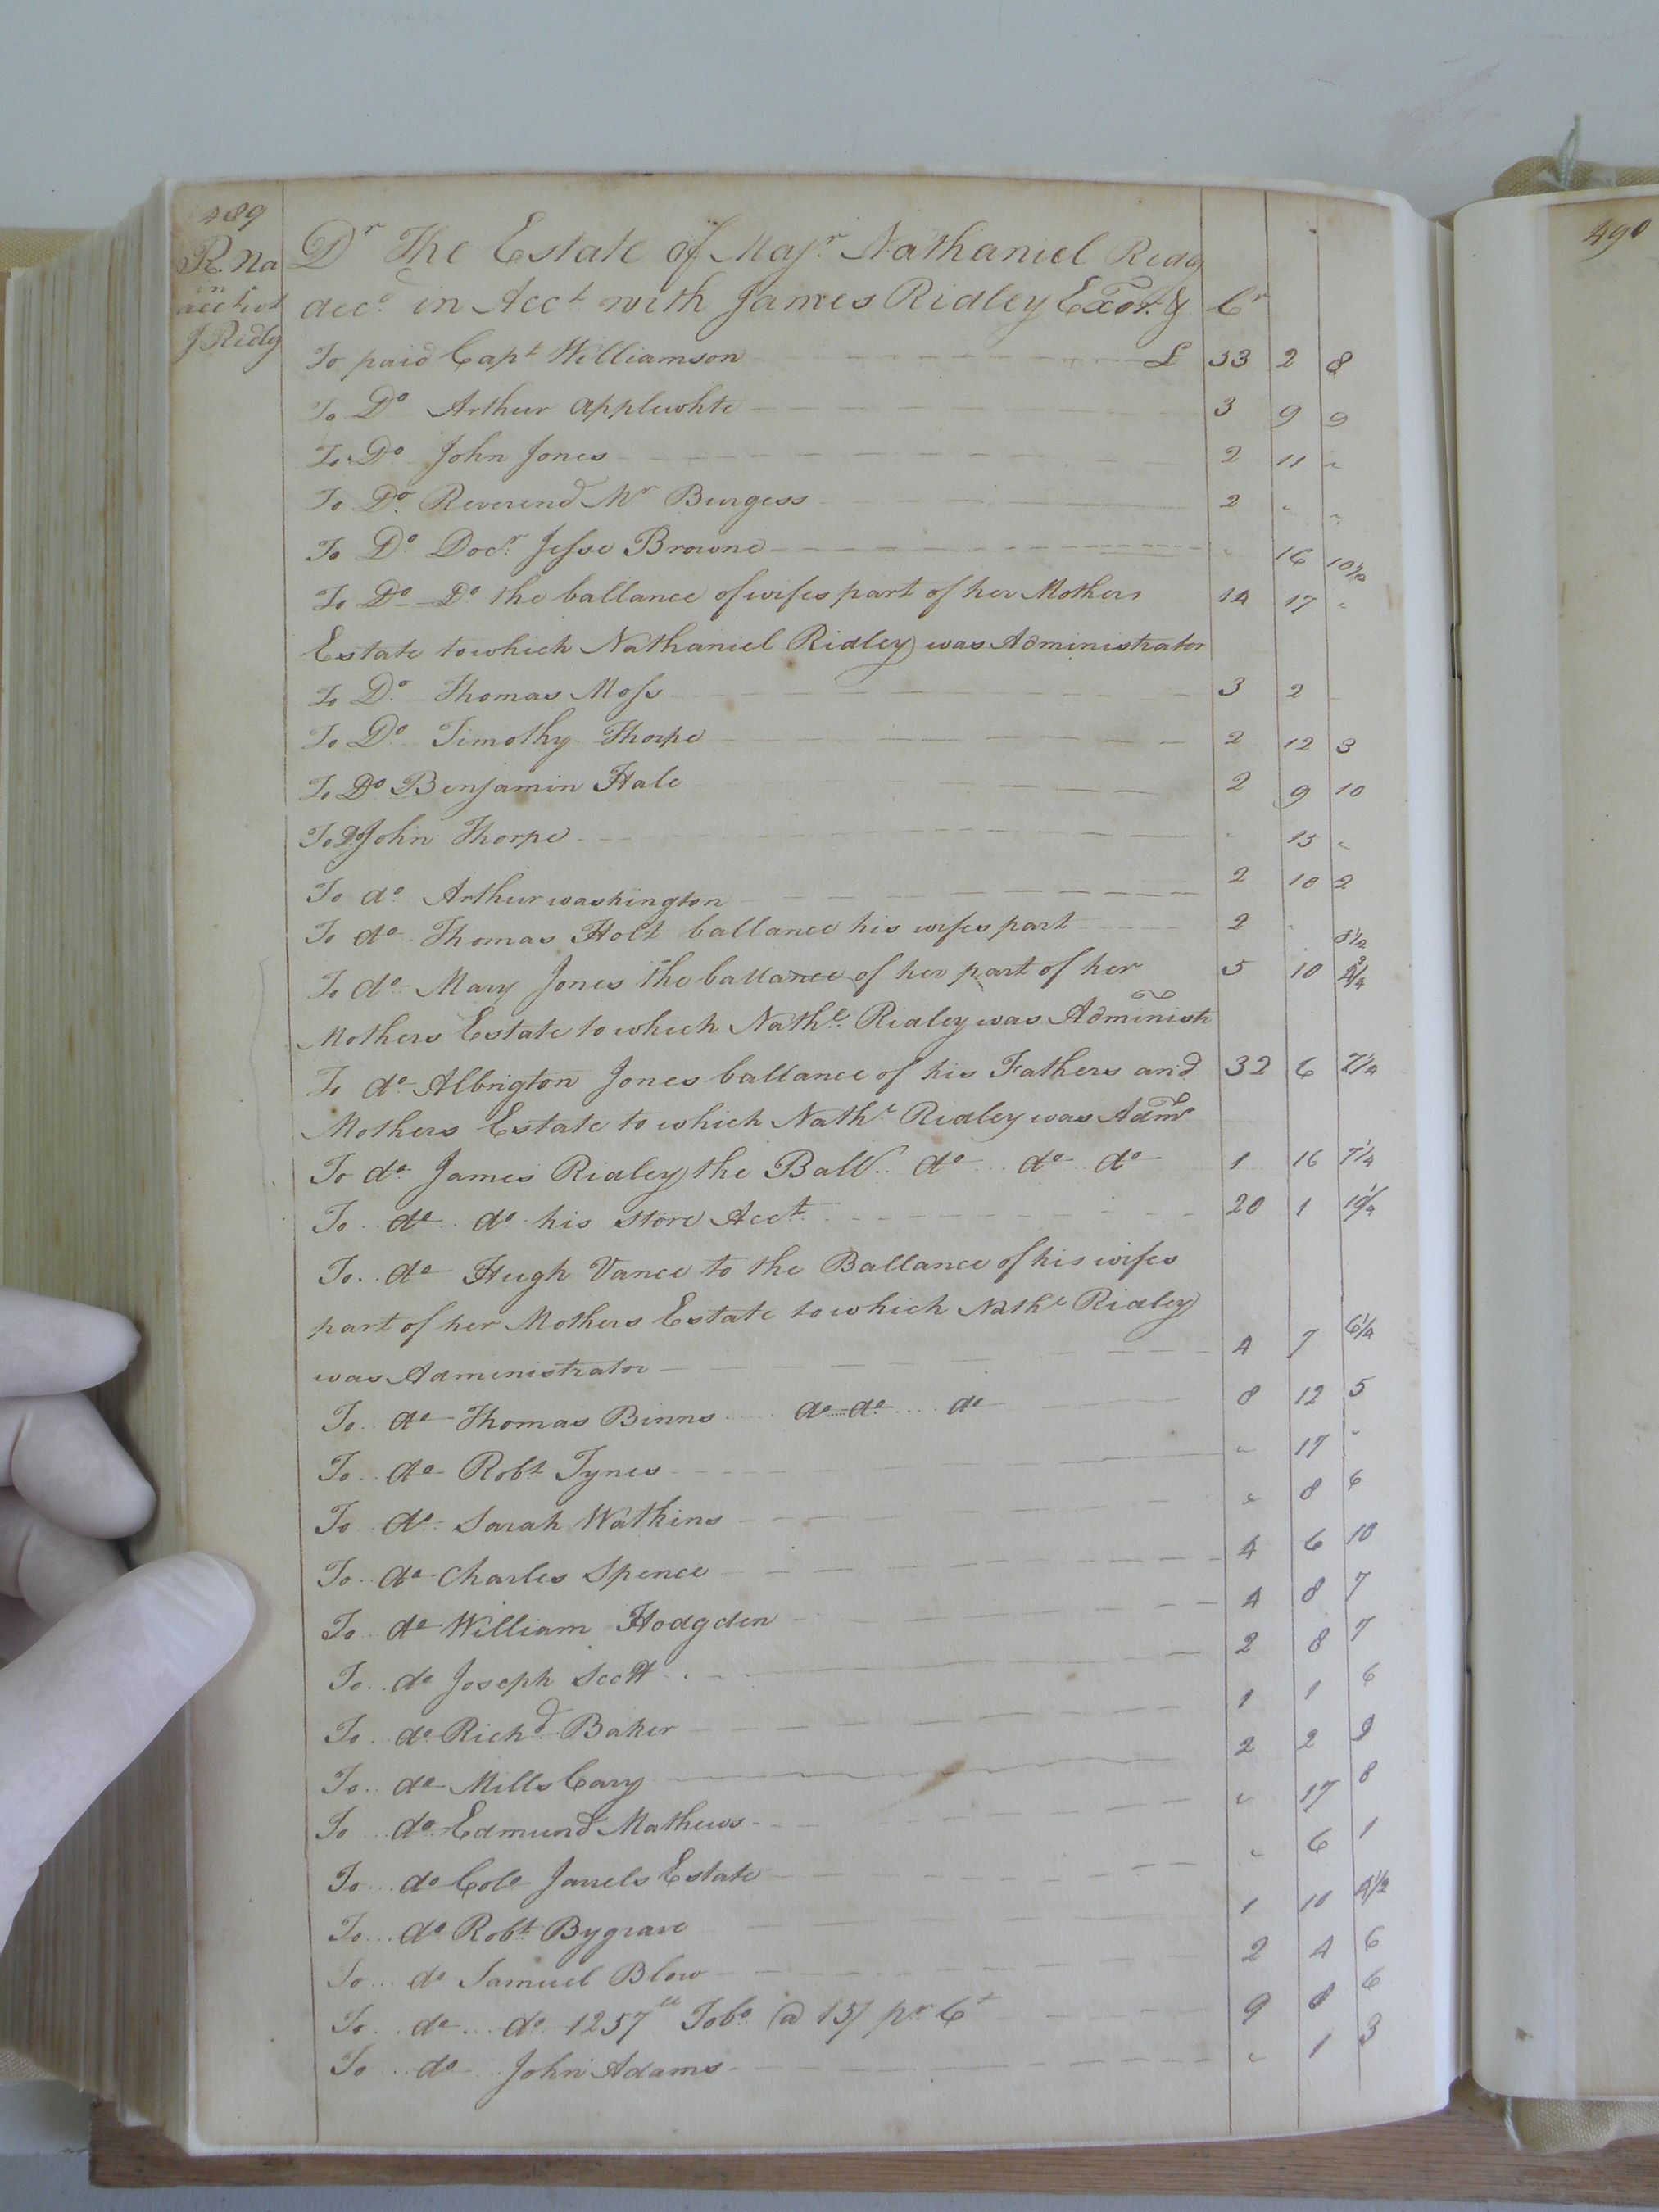 489
R. Na
in
acc twt
J Ridly
490
Dr The Estate of Majr. Nathaniel Ridly
decd. in Acct with James Ridley Exor. & Cr
To paid Capt Williamson £ 33 2 8
To Do Arthur Applewhte 3 9 9
To Do John Jones 2 11 "
To Do. Reverend Mr Burgess 2 " "
To Do. Docr. Jesse Browne " 16 10 1/2
To Do Do the ballance of wifes part of her Mothers 14 17 "
Estate to which Nathaniel Ridley was Administrator
To Do. Thomas Moss 3 2
To Do. Timothy Thorpe 2 12 3
To Do Benjamin Hale 2 9 10
To D. John Thorpe " 15 "
To do. Arthur washington 2 10 2
To do. Thomas Holt ballance his wifes part 2 " 8 1/2
To do. Mary Jones the ballance of her part of her 5 10
Mothers Estate to which Nathl. Ridley was Administr
To do. Albrigton Jones ballance of his Fathers and 32 6 7 1/4
Mothers Estate to which Nathl. Ridley was Admr
To do. James Ridley the Ball. do do do 1 16 7 1/4
To do do his store Acct. 20 1 10 1/4
To do Hugh Vance to the Ballance of his wifes
part of her Mothers Estate to which Nathl Ridley
was Administrator 4 7 6 1/4
To do Thomas Binns do do do 8 12 5
To do Robt. Tynes " 17 "
To do. Sarah Watkins " 8 6
To do Charles Spence 4 6 10
To do William Hodgden 4 8 7
To do Joseph Scott 2 8 7
To do. Richd. Baker 1 1 6
To do Mills Cary 2 2 9
To do. Edmund Mathews " 17 8
To do Colo Jarrels Estate " 6 1
To do Robt. Bygrave 1 10 4 1/2
To do Samuel Blow 2 4 6
To do do 1257 ll Tobo. @ 15/ pr Ct 9 8 6
To do John Adams " 1 3